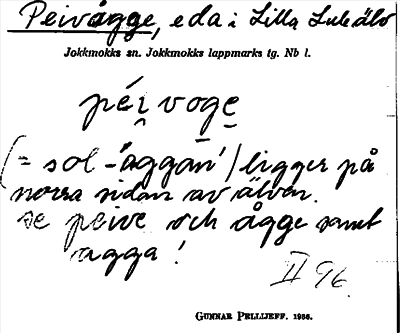 Peivågge, eda i Lilla Lule älv
Jokkmokks sn. Jokkmokks lappmarks tg. Nb l.
péi̯ voge̱
(= sol-"aggan") ligger på
norra sidan av älven.
se peive och ågge samt
agga!
II 96
GUNNAR PELLIJEFF. 1956.